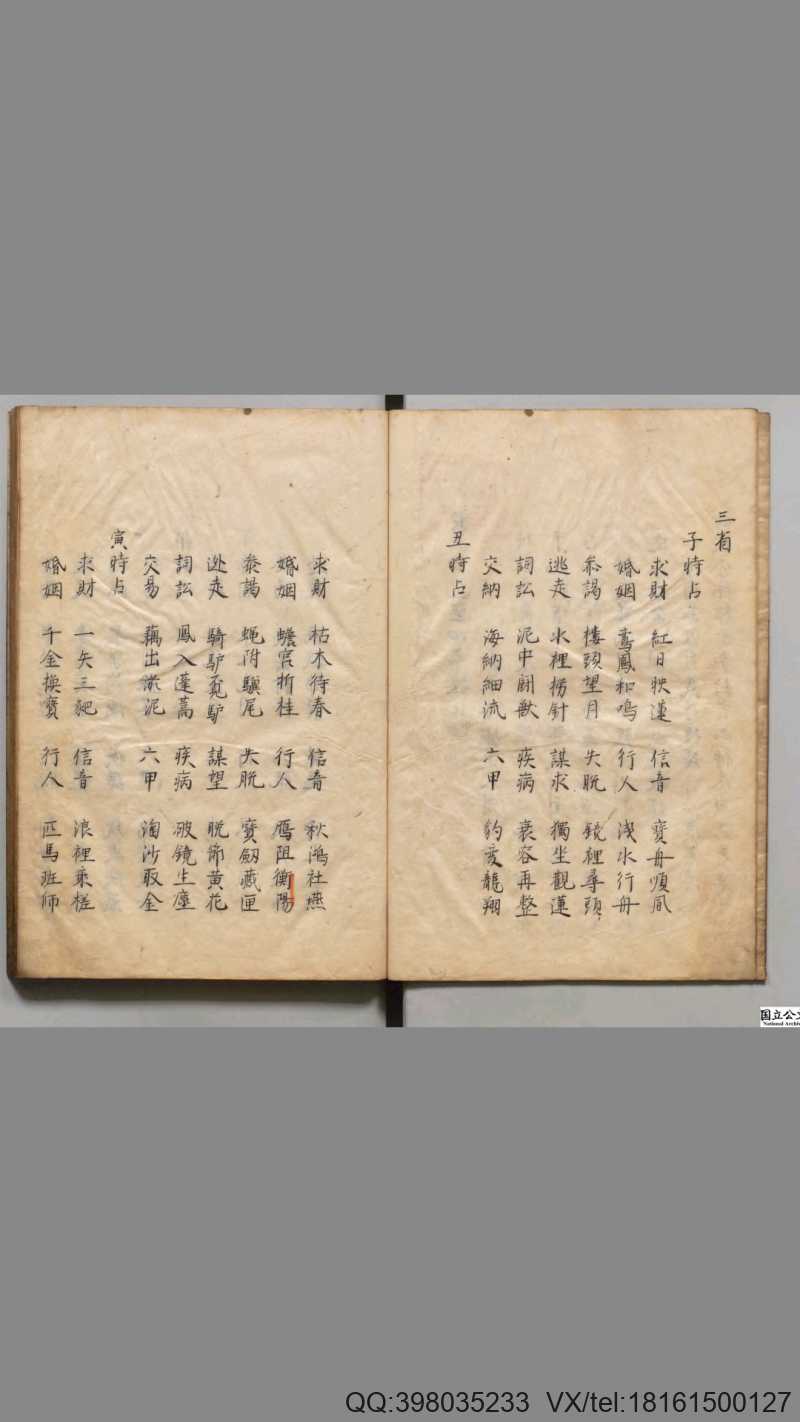 三肖
子時占
求財 紅日映蓮 信音 寶舟順風
婚姻 鸞鳳和鳴 行人 淺水行舟
叅謁 樓頭望月 失脫 鏡裡尋頭
逃走 水裡撈針 謀求 獨坐觀蓮
詞訟 泥中鬪獸 疾病 衰容再整
交納 海納細流 六甲 豹变龍翔
丑時占
求財 枯木待春 信音 秋鴻社燕
婚姻 蟾宮折桂 行人 鴈阻衡陽
叅謁 蝇附驥尾 失脫 寶劔藏匣
逃走 騎駅覔馿 謀望 脫節黄花
詞訟 鳳入蓬蒿 疾病 破鏡生塵
交易 藕出淤泥 六甲 淘沙取金
寅時占
求財 一矢三 信音 浪裡乘槎
婚姻 千金換寶 行人 匹馬班师
国立公文
National Archiv
QQ:398035233 VX/tel:18161500127